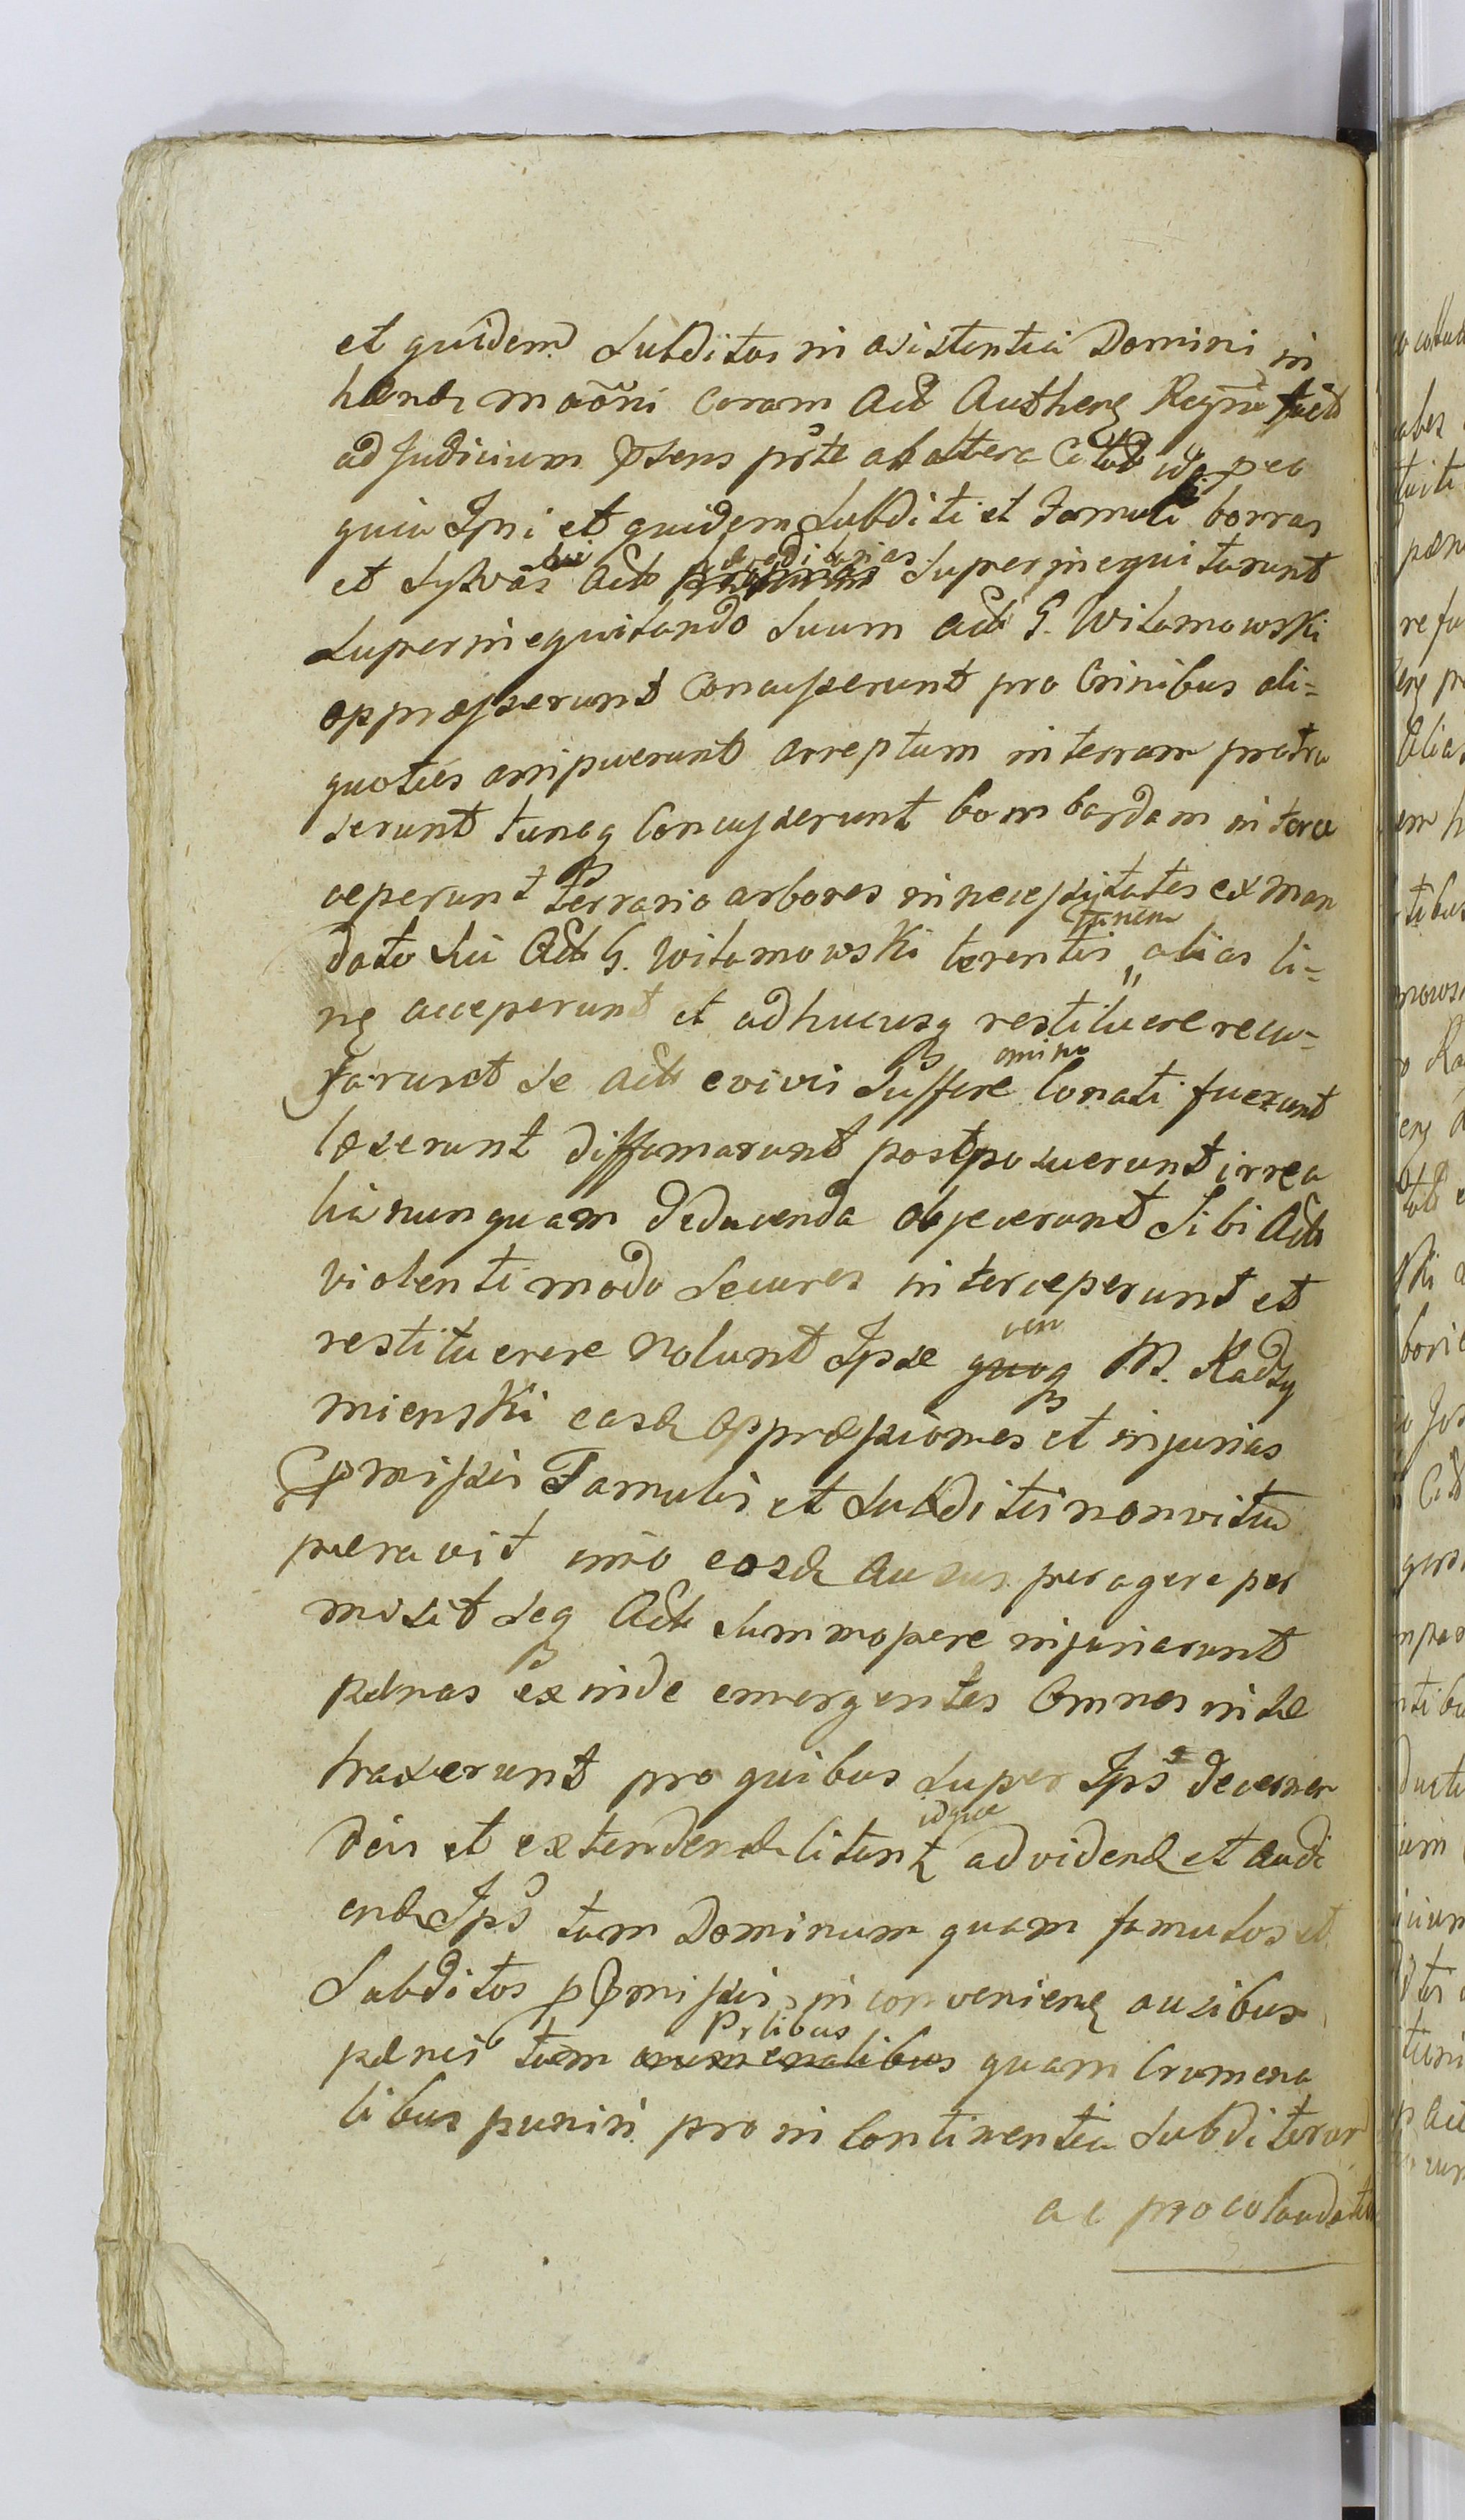 et quidem Subditos in asistentia Domini in
hærend maõni coram ActAutheng Regni fact
ad Judicium prsens pñte ab altera Citat ideo
quia Ipsi et quidem Subditi et Famuli borras
et Sylvas sui Act hæreditarias Superinequitarunt
Superinequitando Suum Act G. Witamowski
oppræsserunt Concusserunt pro Crinibus ali=
quoties arripuerunt arreptum in terram protra
serunt tuncq Concusserunt bombardam interce
ceperunt ferrario arbores in necessitates ex man
dato Sui Act G. Witamowski terentis tunica alias li=
nę acceperunt et adhucusq restituere recu=
sarunt Se Act e vivis Suffere omino Conati fuerunt
læserunt diffamarunt postposuerunt irrea
lia nunquam deducenda objecerunt Sibi Act
violenti modo Secures interceperunt et
restituerere nolunt Ipse quoq vero M. Radzy
mienski easd oppræssiones et injurias
præmissis Famulis et Subditis non vitu
peravit imo eosd ausus peragere per
misit Seq Act Summopere injuriarunt
pænas exinde emergentes Omnes in se
traxerunt pro quibus Super Ips decernen
deis et extendend litant idque ad vidend et audi
end Ips tam Dominum quam famulos et
Subditos pro præmissis inconvenienę ausibus
pænis tam crumenalibus Prlibus quam Crumena
libus puniri pro in Continentia Subditorum
ac pro colaudatis